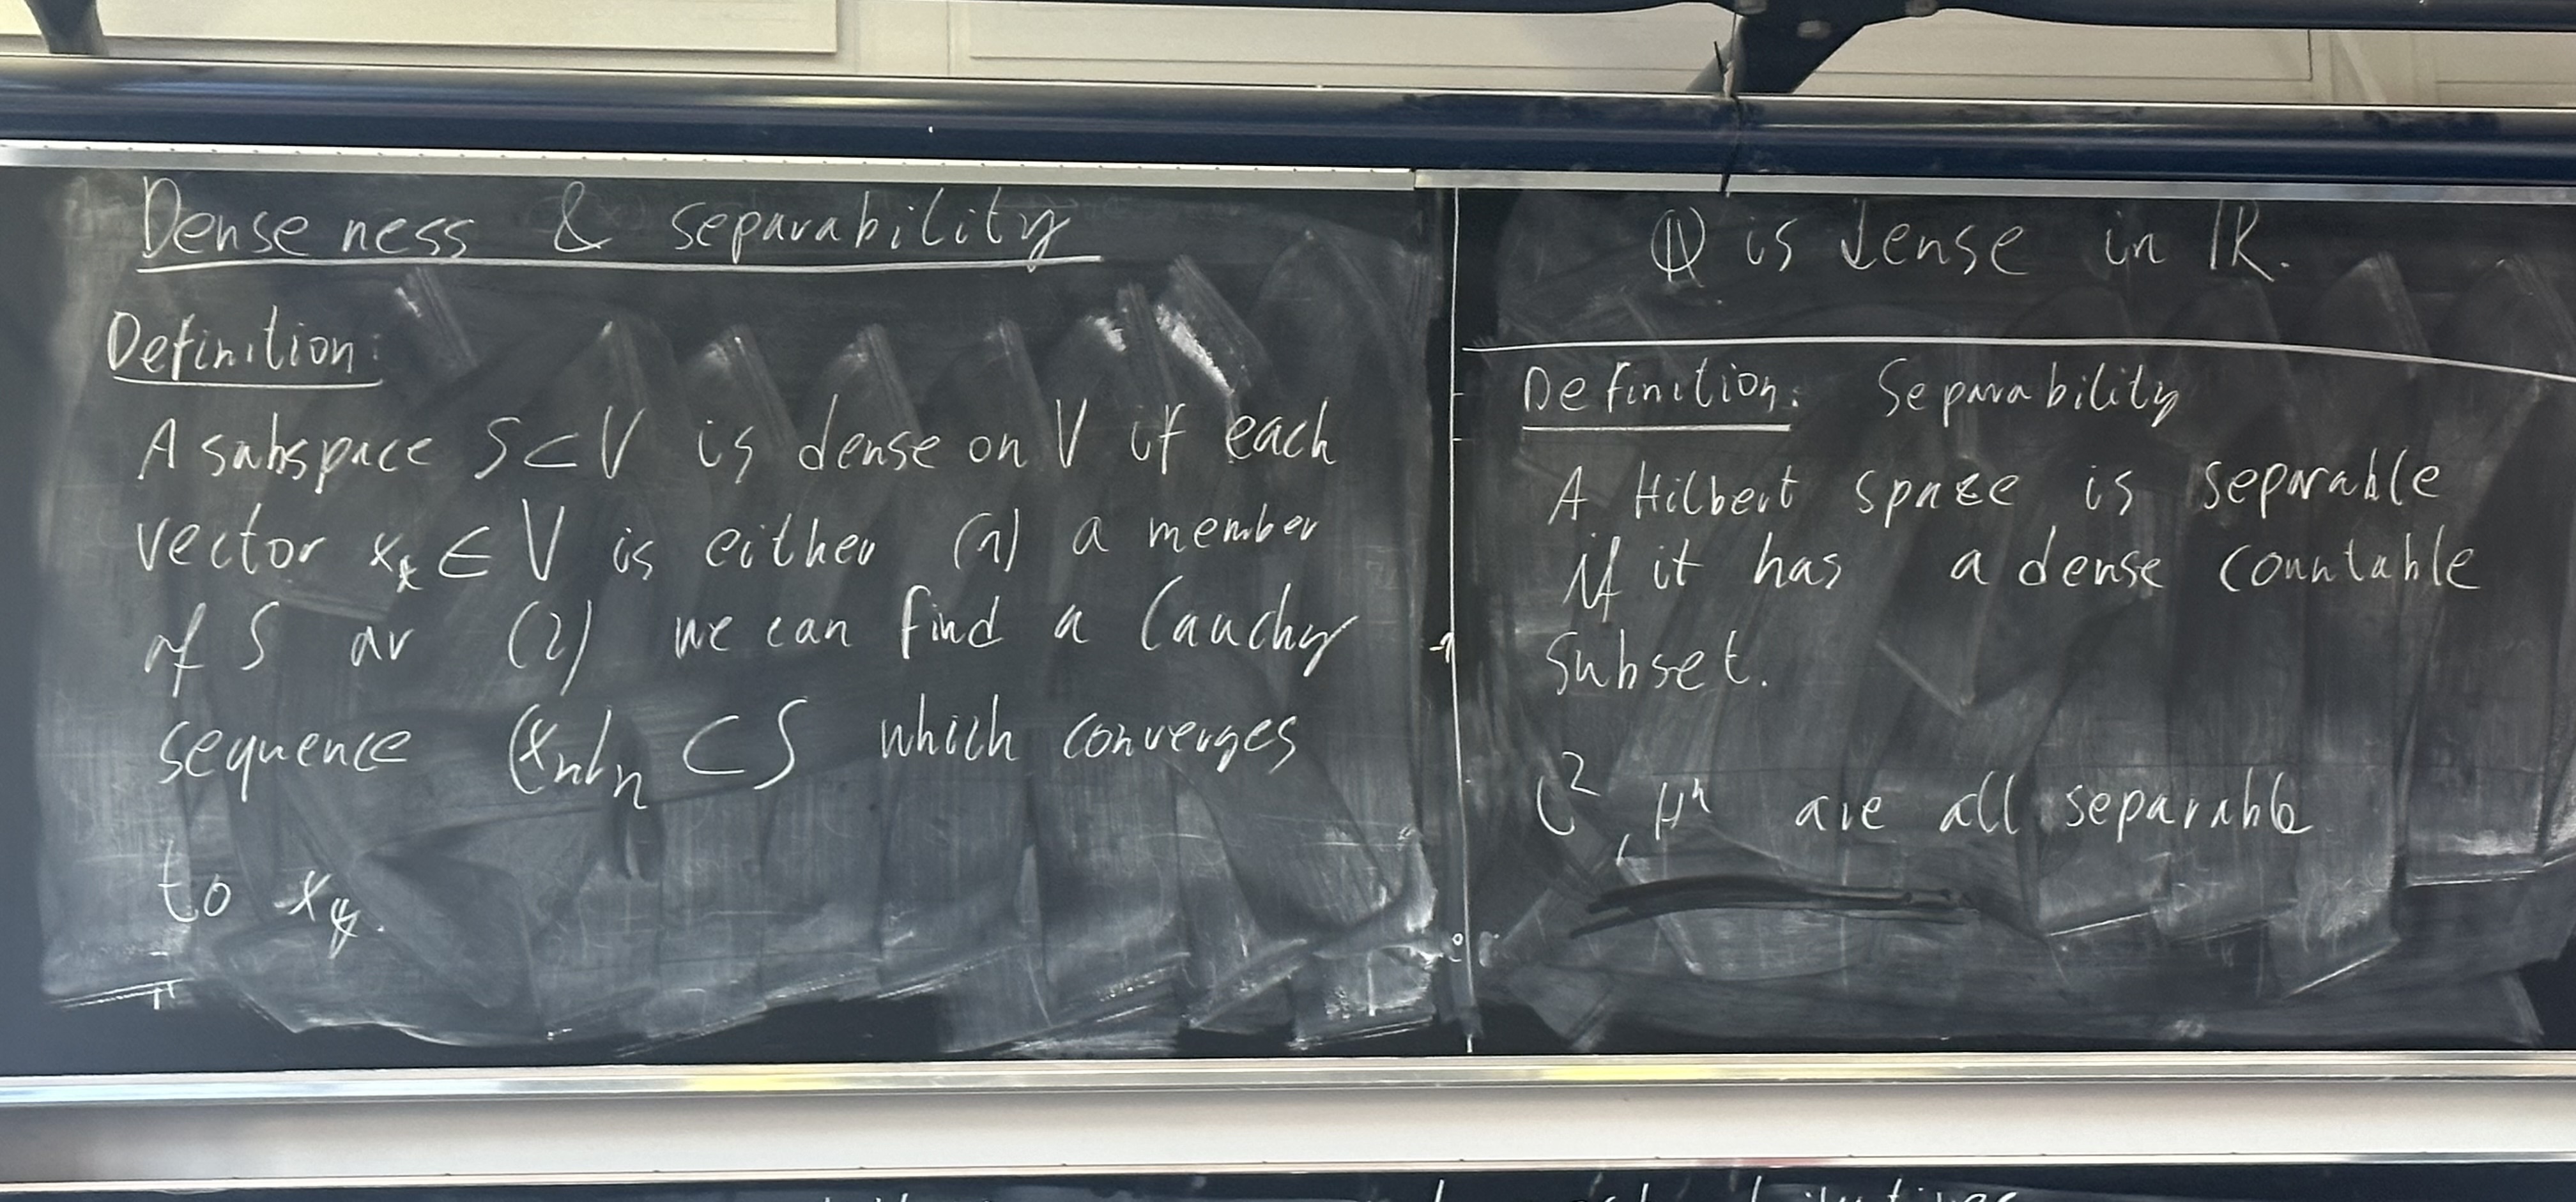 Denseness & separability
Definition:
A subspace S⊂V is dense on V if each
vector x ∈ V is either (1) a member
of S or (2) we can find a Cauchy
sequence (xn)n ⊂ S which converges
to x
ℚ is dense in ℝ.
Definition: Separability
A Hilbert space is separable
if it has a dense countable
subset.
are all separable